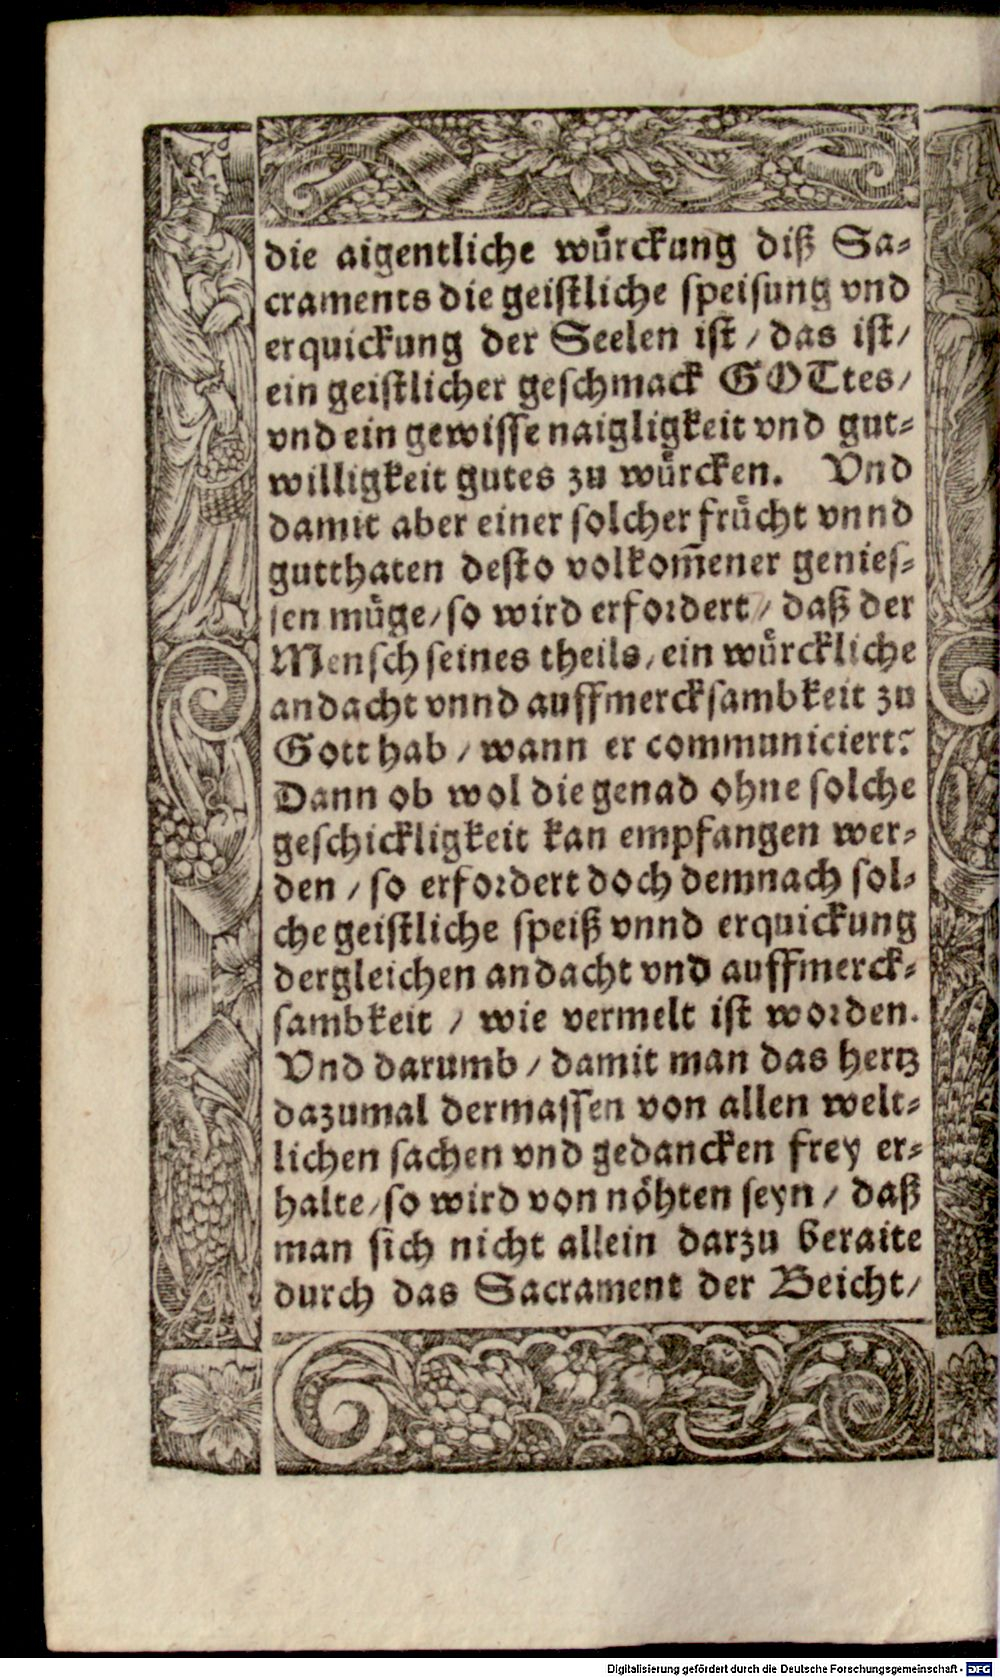 die aigentliche wuͤrckung diß Sa⸗
craments die geistliche speisung vnd
erquickung der Seelen ist / das ist /
ein geistlicher geschmack GOTtes /
vnd ein gewisse naigligkeit vnd gut⸗
willigkeit gutes zu wuͤrcken. Vnd
damit aber einer solcher fruͤcht vnnd
gutthaten desto volkom̃ener genies⸗
sen muͤge / so wird erfordert / daß der
Mensch seines theils / ein wuͤrckliche
andacht vnnd auffmercksambkeit zu
Gott hab / wann er communiciert:
Dann ob wol die genad ohne solche
geschickligkeit kan empfangen wer⸗
den / so erfordert doch demnach sol⸗
che geistliche speiß vnnd erquickung
dergleichen andacht vnd auffmerck⸗
sambkeit / wie vermelt ist worden.
Vnd darumb / damit man das hertz
dazumal dermassen von allen welt⸗
lichen sachen vnd gedancken frey er⸗
halte / so wird von nöhten seyn / daß
man sich nicht allein darzu beraite
durch das Sacrament der Beicht /
Digitalisierung gefördert durch die Deutsche Forschungsgemeinschaft - DFG